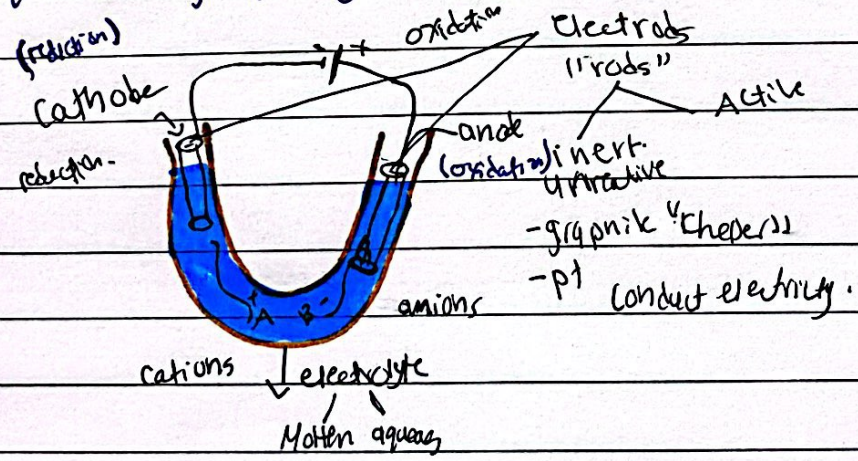 (reduction)
oxidation
Electrods
"rods"
Cathobe
Active
anode
reduction.
(oxidation)
inert.
unreactive
-graphik "Cheper"
-pt
Conduct electricity.
+A B-
anions
cations
electrolyte
Molten aqueas